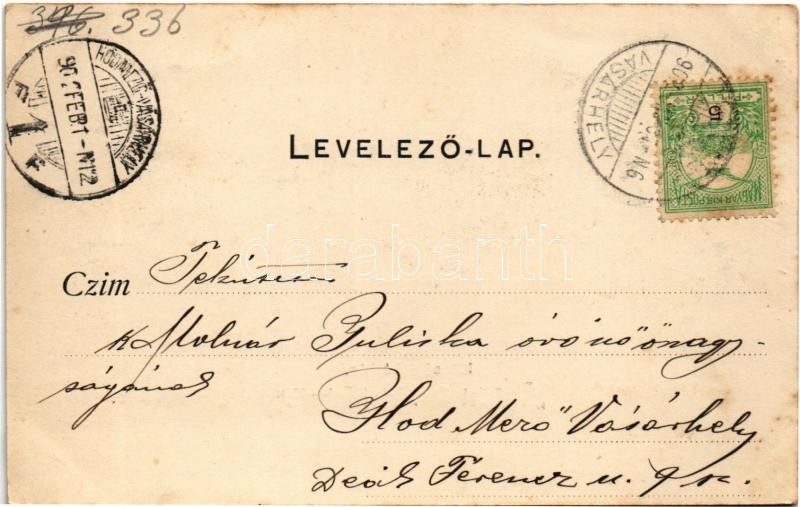 346. 336
HÓDMEZŐ-VÁSÁRHELY
902 FEB 1 - N12
F 1 F
VÁSÁRHELY
N6
5
MAGYAR KIR. POSTA
LEVELEZŐ-LAP.
darabanth
Czim Tekintetes
K Molnár Juliska óvónő önagy-
ságának
Hod Mező Vásárhely
Deák Ferencz u. 9 sz.